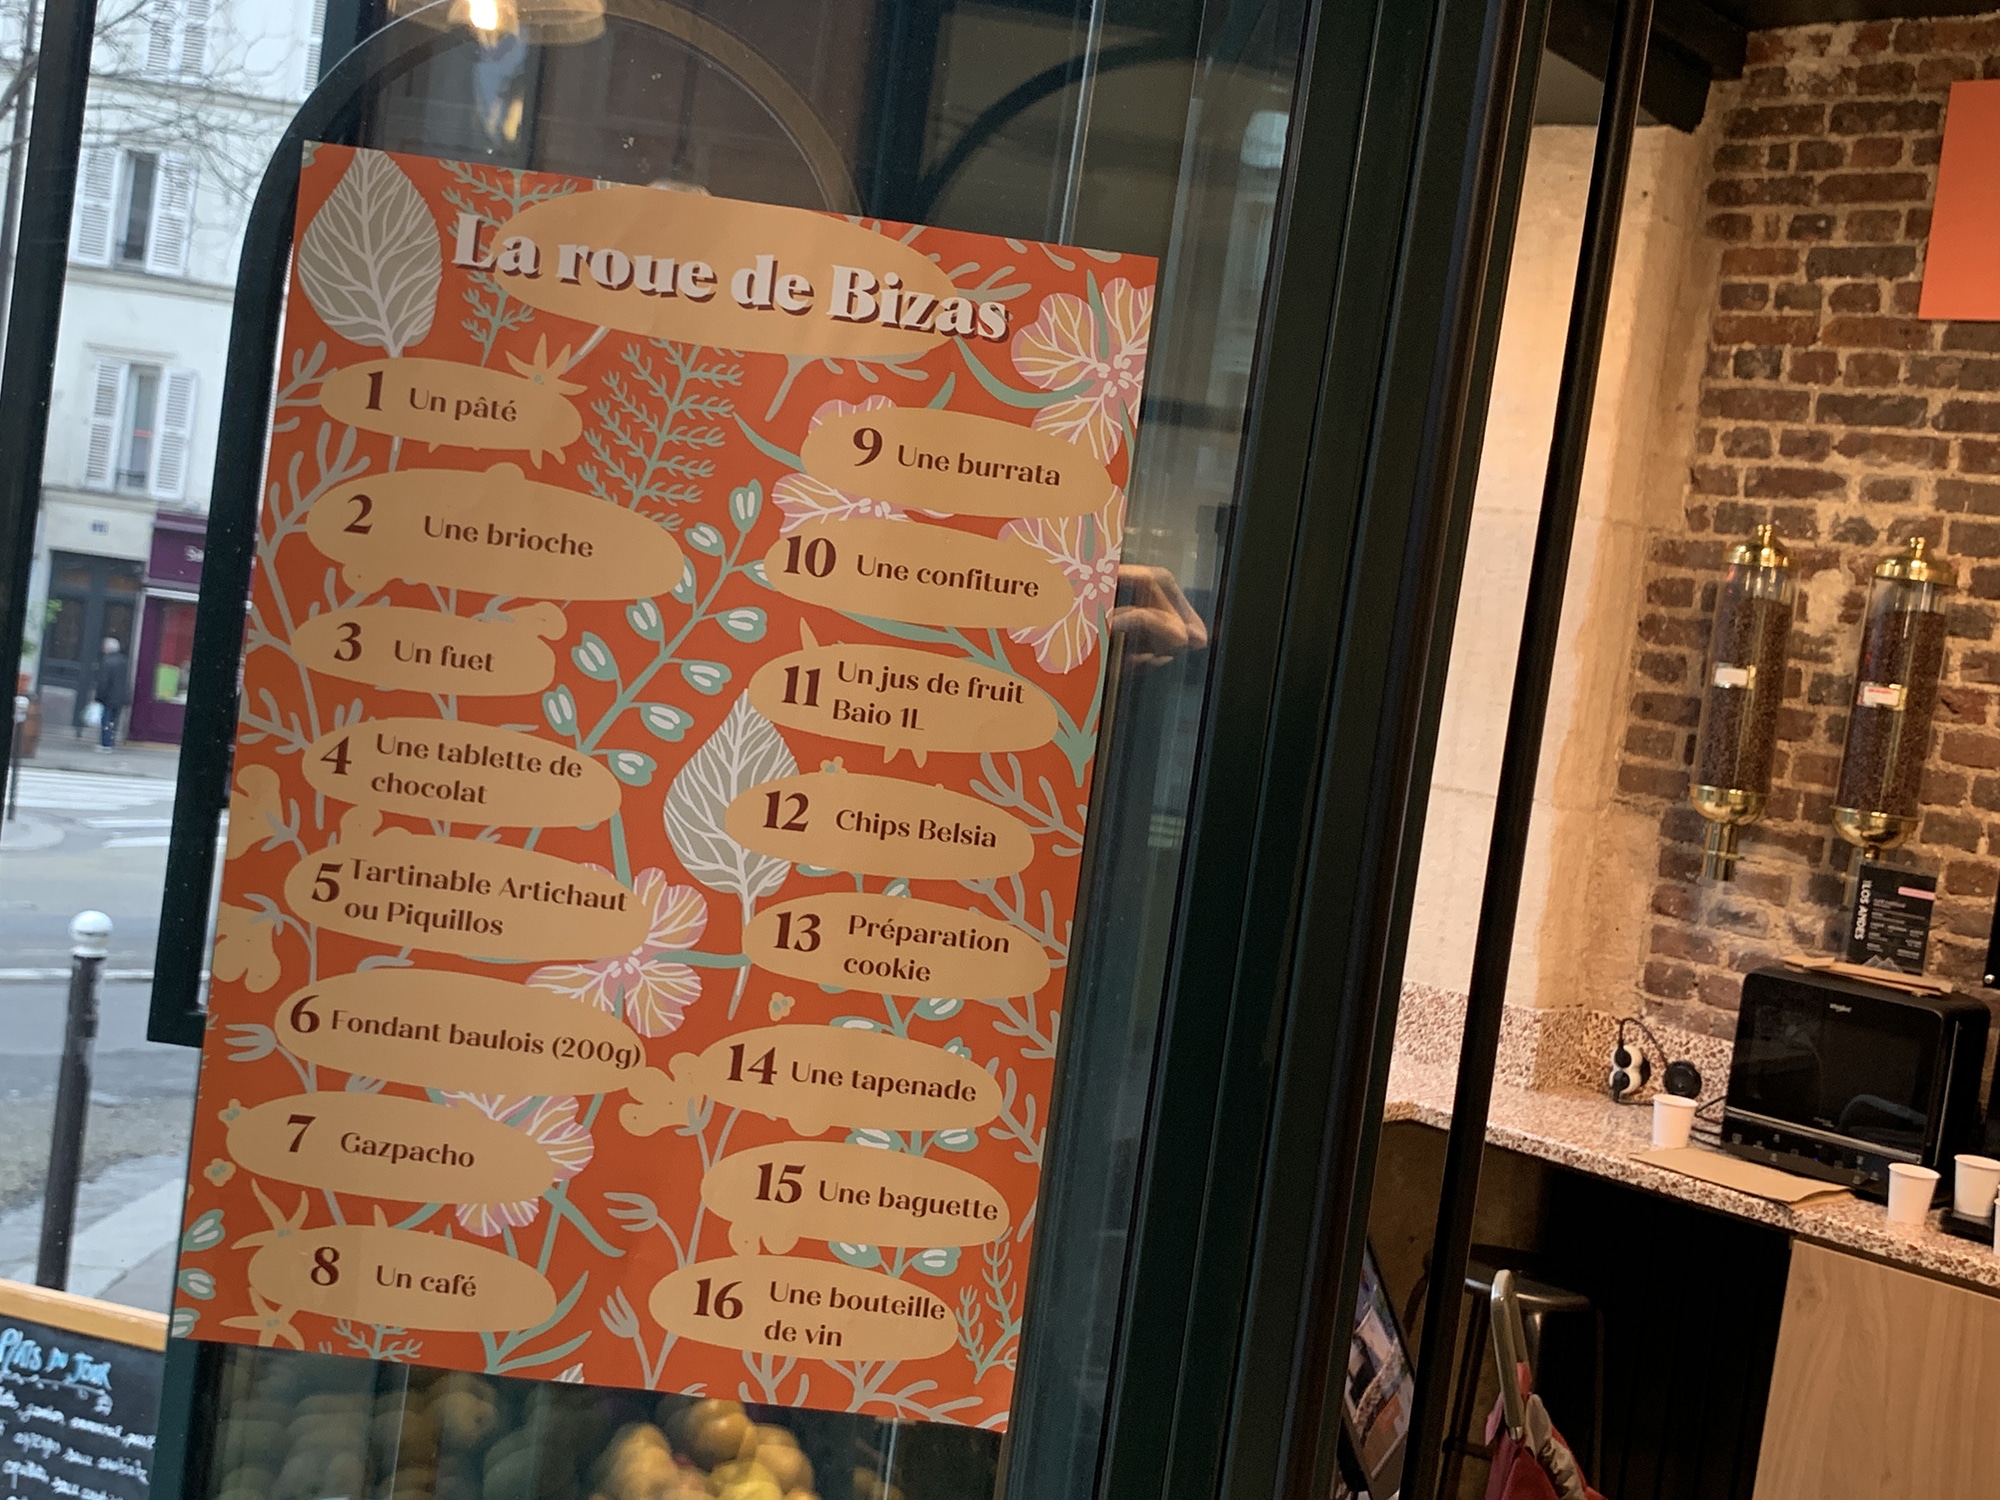 La roue de Bizas
1 Un pâté
2 Une brioche
3 Un fuet
4 Une tablette de
chocolat
5 Tartinable Artichaut
ou Piquillos
6 Fondant baulois (200g)
7 Gazpacho
8 Un café
9 Une burrata
10 Une confiture
11 Un jus de fruit
Baio 1L
12 Chips Belsia
13 Préparation
cookie
14 Une tapenade
15 Une baguette
16 Une bouteille
de vin
PLATS DU JOUR
LOS ANDES